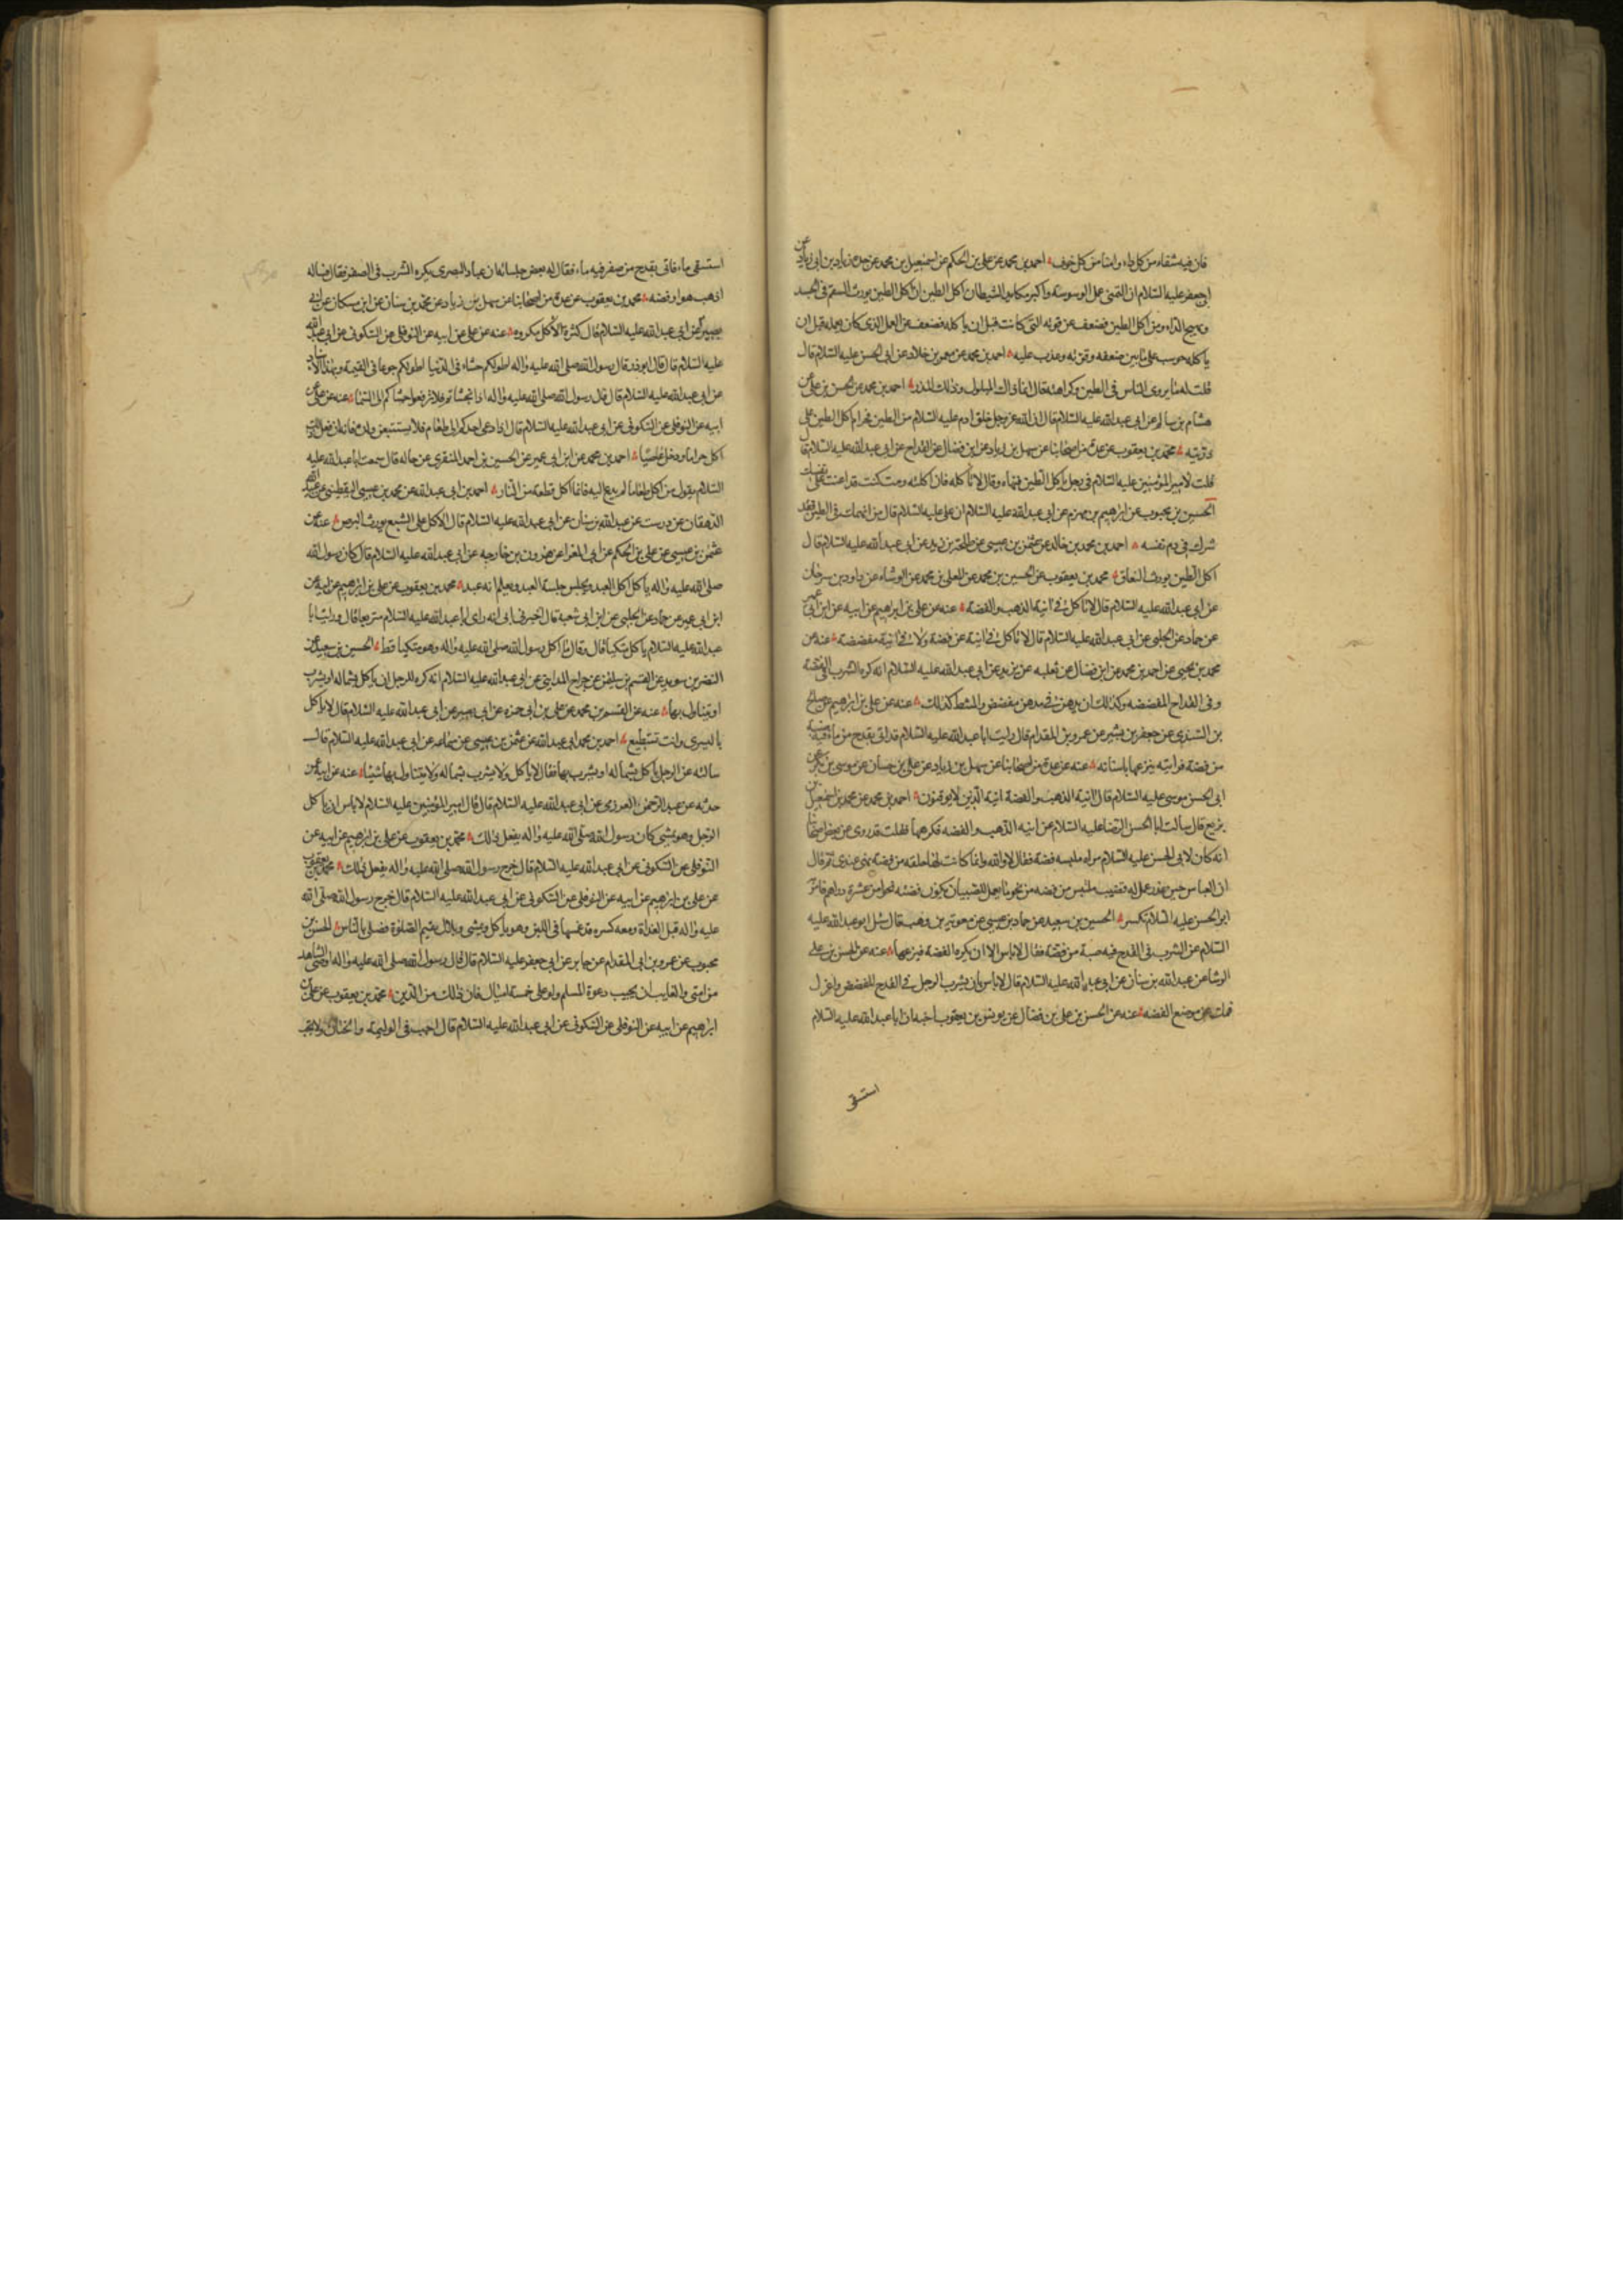 فان فيه شفاء من كل داء وامنا من كل خوف احمد بن محمد عن علي بن الحكم عن اسمعيل بن محمد عن جده زياد بن ابي زياد عن
ابي جعفر عليه السلام ان التمني عمل الوسوسة واكبر مكايد الشيطان اكل الطين ان اكل الطين يورث السقم في الجسد
ويهيج الداء ومن اكل الطين فضعف عن قوته التي كانت قبل ان ياكله فضعف عن العمل الذي كان يعمله قبل ان
ياكله حوسب على ما بين ضعفه وقوته وعذب عليه احمد بن محمد عن معمر بن خلاد عن ابي الحسن عليه السلام قال
قلت له ما يروي الناس في الطين وكراهته فقال انما ذاك المبلول وذلك المدر احمد بن محمد عن الحسن بن علي عن
هشام بن سالم عن ابي عبد الله عليه السلام قال ان الله عز وجل خلق ادم عليه السلام من الطين فحرم اكل الطين على
ذريته محمد بن يعقوب عن عدة من اصحابنا عن سهل بن زياد عن ابن فضال عن القداح عن ابي عبد الله عليه السلام قال
قلت لامير المؤمنين عليه السلام في رجل ياكل الطين فنهاه وقال لا تاكله فان اكلته ومت كنت قد اعنت على نفسك
الحسين بن محبوب عن ابراهيم بن مهزم عن ابي عبد الله عليه السلام ان علي عليه السلام قال من انهمك في الطين فقد
شرك في دم نفسه احمد بن محمد بن خالد عن عثمن بن عيسى عن طلحة بن زيد عن ابي عبد الله عليه السلام قال
اكل الطين يورث النفاق محمد بن يعقوب عن الحسين بن محمد عن المعلى بن محمد عن الوشاء عن داود بن سرحان
عن ابي عبد الله عليه السلام قال لا تاكل في انية الذهب والفضة عنه عن علي بن ابراهيم عن ابيه عن ابن ابي عمير
عن حماد عن الحلبي عن ابي عبد الله عليه السلام قال لا تاكل في انية عن فضة ولا في انية مفضضة عنه عن
محمد بن يحيى عن احمد بن محمد عن ابن فضال عن ثعلبه عن بريد عن ابي عبد الله عليه السلام انه كره الشرب في الفضة
وفي القداح المفضضه وكذلك ان يدهن في مدهن مفضض والمشط كذلك عنه عن علي بن ابراهيم عن صالح
بن السندي عن جعفر بن بشير عن عمرو بن المقدام قال رايت ابا عبد الله عليه السلام قد اتي بقدح من ماء فيه ضبة
من فضة فرايته ينزعها باسنانه عنه عن عدة من اصحابنا عن سهل بن زياد عن علي بن حسان عن موسى بن بكر عن
ابي الحسن موسى عليه السلام قال انية الذهب والفضة انية الذين لا يوقنون احمد بن محمد عن محمد بن اسمعيل بن
بزيع قال سالت ابا الحسن الرضا عليه السلام عن انيه الذهب والفضه فكرهها فقلت قد روي عن بعض اصحابنا
انه كان لابي الحسن عليه السلام مراه ملبسه فضة فقال لا والله وانما كانت لها حلقه من فضة هي عندي ثم قال
ان العباس حين عذر عمل له قضيب ملبس من فضه من نحو ما يعمل للصبيان يكون فضته نحوا من عشرة دراهم فامر
ابو الحسن عليه السلام فكسر الحسين بن سعيد عن حماد بن عيسى عن معوية بن وهب قال سئل ابو عبد الله عليه
السلام عن الشرب في القدح فيه ضبة من فضة فقال لا باس الا ان يكره الفضة فينزعها عنه عن الحسن بن علي
الوشا عن عبد الله بن سنان عن ابي عبد الله عليه السلام قال لا باس بان يشرب الرجل في القدح المفضض واعزل
فمك عن موضع الفضه عنه عن الحسن بن علي بن فضال عن يونس بن يعقوب اخيه ان ابا عبد الله عليه السلام
استسقى
استسقى ماء فاتي بقدح من صفر فيه ماء فقال له بعض جلسائه ان عباد البصري يكره الشرب في الصفر فقال فساله
اذهب هو او فضه محمد بن يعقوب عن عدة من اصحابنا عن سهل بن زياد عن محمد بن سنان عن ابن مسكان عن ابي
بصير عن ابي عبد الله عليه السلام قال كثرة الاكل مكروه عنه عن علي عن ابيه عن النوفلي عن السكوني عن ابي عبد الله
عليه السلام قال قال ابوذر قال رسول الله صلى الله عليه واله اطولكم جشاء في الدنيا اطولكم جوعا في القيمة وبهذا الاسناد
عن ابي عبد الله عليه السلام قال قال رسول الله صلى الله عليه واله اذا تجشاتم فلا ترفعوا جشاكم الى السماء عنه عن علي عن
ابيه عن النوفلي عن السكوني عن ابي عبد الله عليه السلام قال اذا دعي احدكم الى طعام فلا يستتبعن ولده فانه ان فعل ذلك
اكل حراما ودخل غاصبا احمد بن محمد عن ابن ابي عمير عن الحسين بن احمد المنقري عن خاله قال سمعت ابا عبد الله عليه
السلام يقول من اكل طعاما لم يدع اليه فانما اكل قطعة من النار احمد بن ابي عبد الله عن محمد بن عيسى اليقطيني عن عبيد الله
الدهقان عن درست عن عبد الله بن سنان عن ابي عبد الله عليه السلام قال الاكل على الشبع يورث البرص عنه عن
عثمن بن عيسى عن علي بن الحكم عن ابي المغرا عن هرون بن خارجه عن ابي عبد الله عليه السلام قال كان رسول الله
صلى الله عليه واله ياكل اكل العبد ويجلس جلسة العبد ويعلم انه عبد محمد بن يعقوب عن علي بن ابراهيم عن ابيه عن
ابن ابي عمير عن حماد عن الحلبي عن ابن ابي شعبة قال اخبرني ابي انه راى ابا عبد الله عليه السلام متربعا قال ورايت ابا
عبد الله عليه السلام ياكل متكيا قال وقال ما اكل رسول الله صلى الله عليه واله وهو متكيا قط الحسين بن سعيد عن
النضر بن سويد عن القسم بن سليمن عن جراح المدايني عن ابي عبد الله عليه السلام انه كره للرجل ان ياكل بشماله او يشرب
او يتناول بها عنه عن القسم بن محمد عن علي بن ابي حمزه عن ابي بصير عن ابي عبد الله عليه السلام قال لا ياكل
باليسرى وانت تستطيع احمد بن محمد ابي عبد الله عن عثمن بن عيسى عن سماعه عن ابي عبد الله عليه السلام قال
سالته عن الرجل ياكل بشماله او يشرب بها فقال لا ياكل ولا يشرب بشماله ولا يتناول بها شيئا عنه عن ابيه عن
حدثه عن عبد الرحمن العرزمي عن ابي عبد الله عليه السلام قال قال امير المؤمنين عليه السلام لا باس ان ياكل
الرجل وهو يمشي كان رسول الله صلى الله عليه واله يفعل ذلك محمد بن يعقوب عن علي بن ابراهيم عن ابيه عن
النوفلي عن السكوني عن ابي عبد الله عليه السلام قال خرج رسول الله صلى الله عليه واله يفعل ذلك محمد بن يعقوب
عن علي بن ابراهيم عن ابيه عن النوفلي عن السكوني عن ابي عبد الله عليه السلام قال خرج رسول الله صلى الله
عليه واله قبل الغداة ومعه كسره قد غمسها في اللبن وهو ياكل ويمشي وبلال يقيم الصلوة فصلى بالناس الحسن بن
محبوب عن عمرو بن ابي المقدام عن جابر عن ابي جعفر عليه السلام قال قال رسول الله صلى الله عليه واله اوصي الشاهد
من امتي والغايب ان يجيب دعوة المسلم ولو على خمسة اميال فان ذلك من الدين محمد بن يعقوب عن علي بن
ابراهيم عن ابيه عن النوفلي عن السكوني عن ابي عبد الله عليه السلام قال اجب في الوليمة والختان ولا تجب